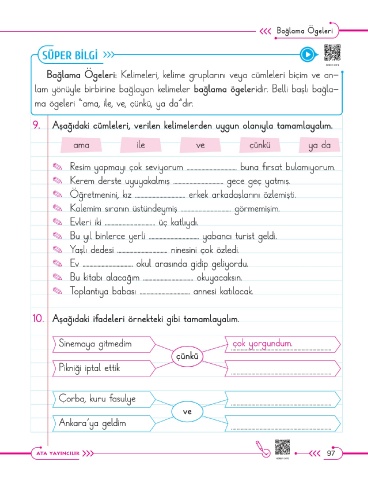 Bağlama Ögeleri
SÜPER BİLGİ
Bağlama Ögeleri: Kelimeleri, kelime gruplarını veya cümleleri biçim ve an-
lam yönüyle birbirine bağlayan kelimeler bağlama ögeleridir. Belli başlı bağla-
ma ögeleri "ama, ile, ve, çünkü, ya da"dır.
9. Aşağıdaki cümleleri, verilen kelimelerden uygun olanıyla tamamlayalım.
ama ile ve çünkü ya da
Resim yapmayı çok seviyorum ........................ buna fırsat bulamıyorum.
Kerem derste uyuyakalmış ........................ gece geç yatmış.
Öğretmenini, kız ........................ erkek arkadaşlarını özlemişti.
Kalemim sıranın üstündeymiş ........................ görmemişim.
Evleri iki ........................ üç katlıydı.
Bu yıl binlerce yerli ........................ yabancı turist geldi.
Yaşlı dedesi ........................ ninesini çok özledi.
Ev ........................ okul arasında gidip geliyordu.
Bu kitabı alacağım ........................ okuyacaksın.
Toplantıya babası ........................ annesi katılacak.
10. Aşağıdaki ifadeleri örnekteki gibi tamamlayalım.
Sinemaya gitmedim
çok yorgundum.
çünkü
Pikniği iptal ettik
Çorba, kuru fasulye
ve
Ankara'ya geldim
ATA YAYINCILIK
97